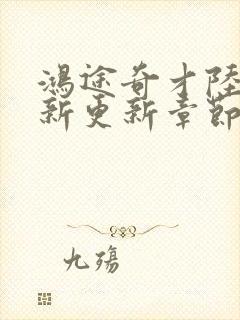 鸿途奇才陸
新更新章節
九殤